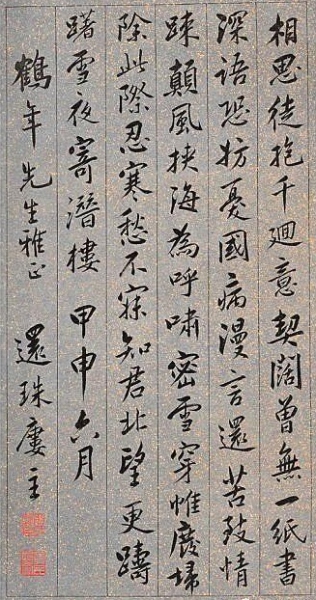 相思徒抱千迴意契闊曾無一紙書
深語恐妨憂國病漫言還苦致情
疎顛風挾海為呼嘯密雪穿帷廢埽
除此際忍寒愁不寐知君北望更躊
躇雪夜寄潛樓 甲申六月
鶴年先生雅正 還珠廔主